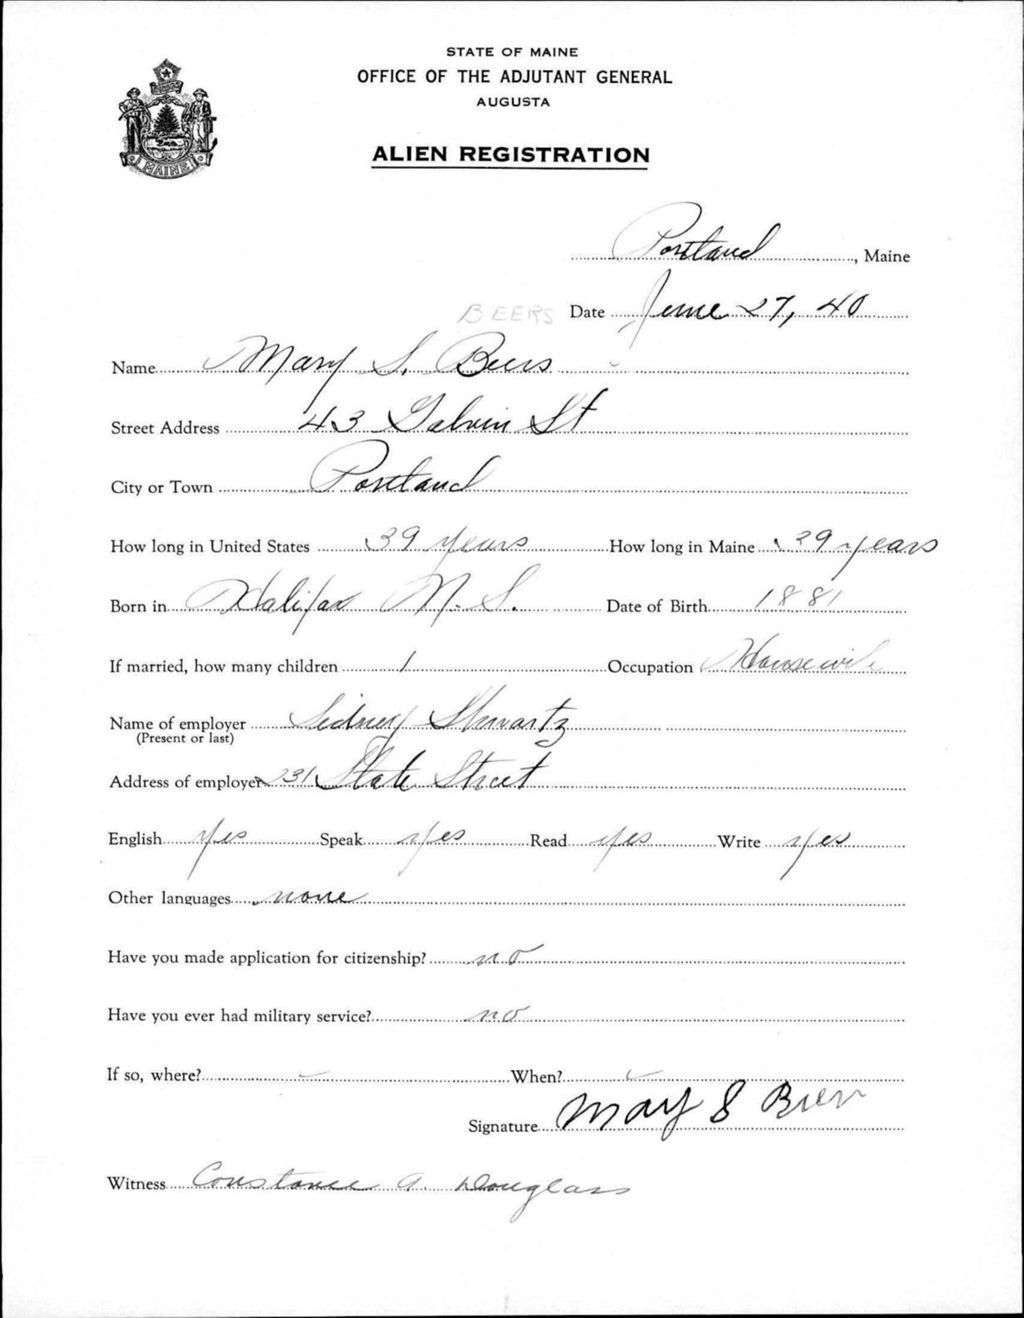 STATE OF MAINE
OFFICE OF THE ADJUTANT GENERAL
AUGUSTA
MAINE
ALIEN REGISTRATION
Portland, Maine
BEERS
Date June 27, 40
Name Mary S. Beers
Street Address 43 Galvin St
City or Town Portland
How long in United States 39 years How long in Maine 39 years
Born in Halifax N. S. Date of Birth 1881
If married, how many children 1 Occupation Housewife
Name of employer Sidney Shwartz
(Present or last)
Address of employer 231 State Street
English Yes Speak yes Read yes Write yes
Other languages none
Have you made application for citizenship? no
Have you ever had military service? no
If so, where? When?
Signature Mary S
Witness Constance A. Douglass